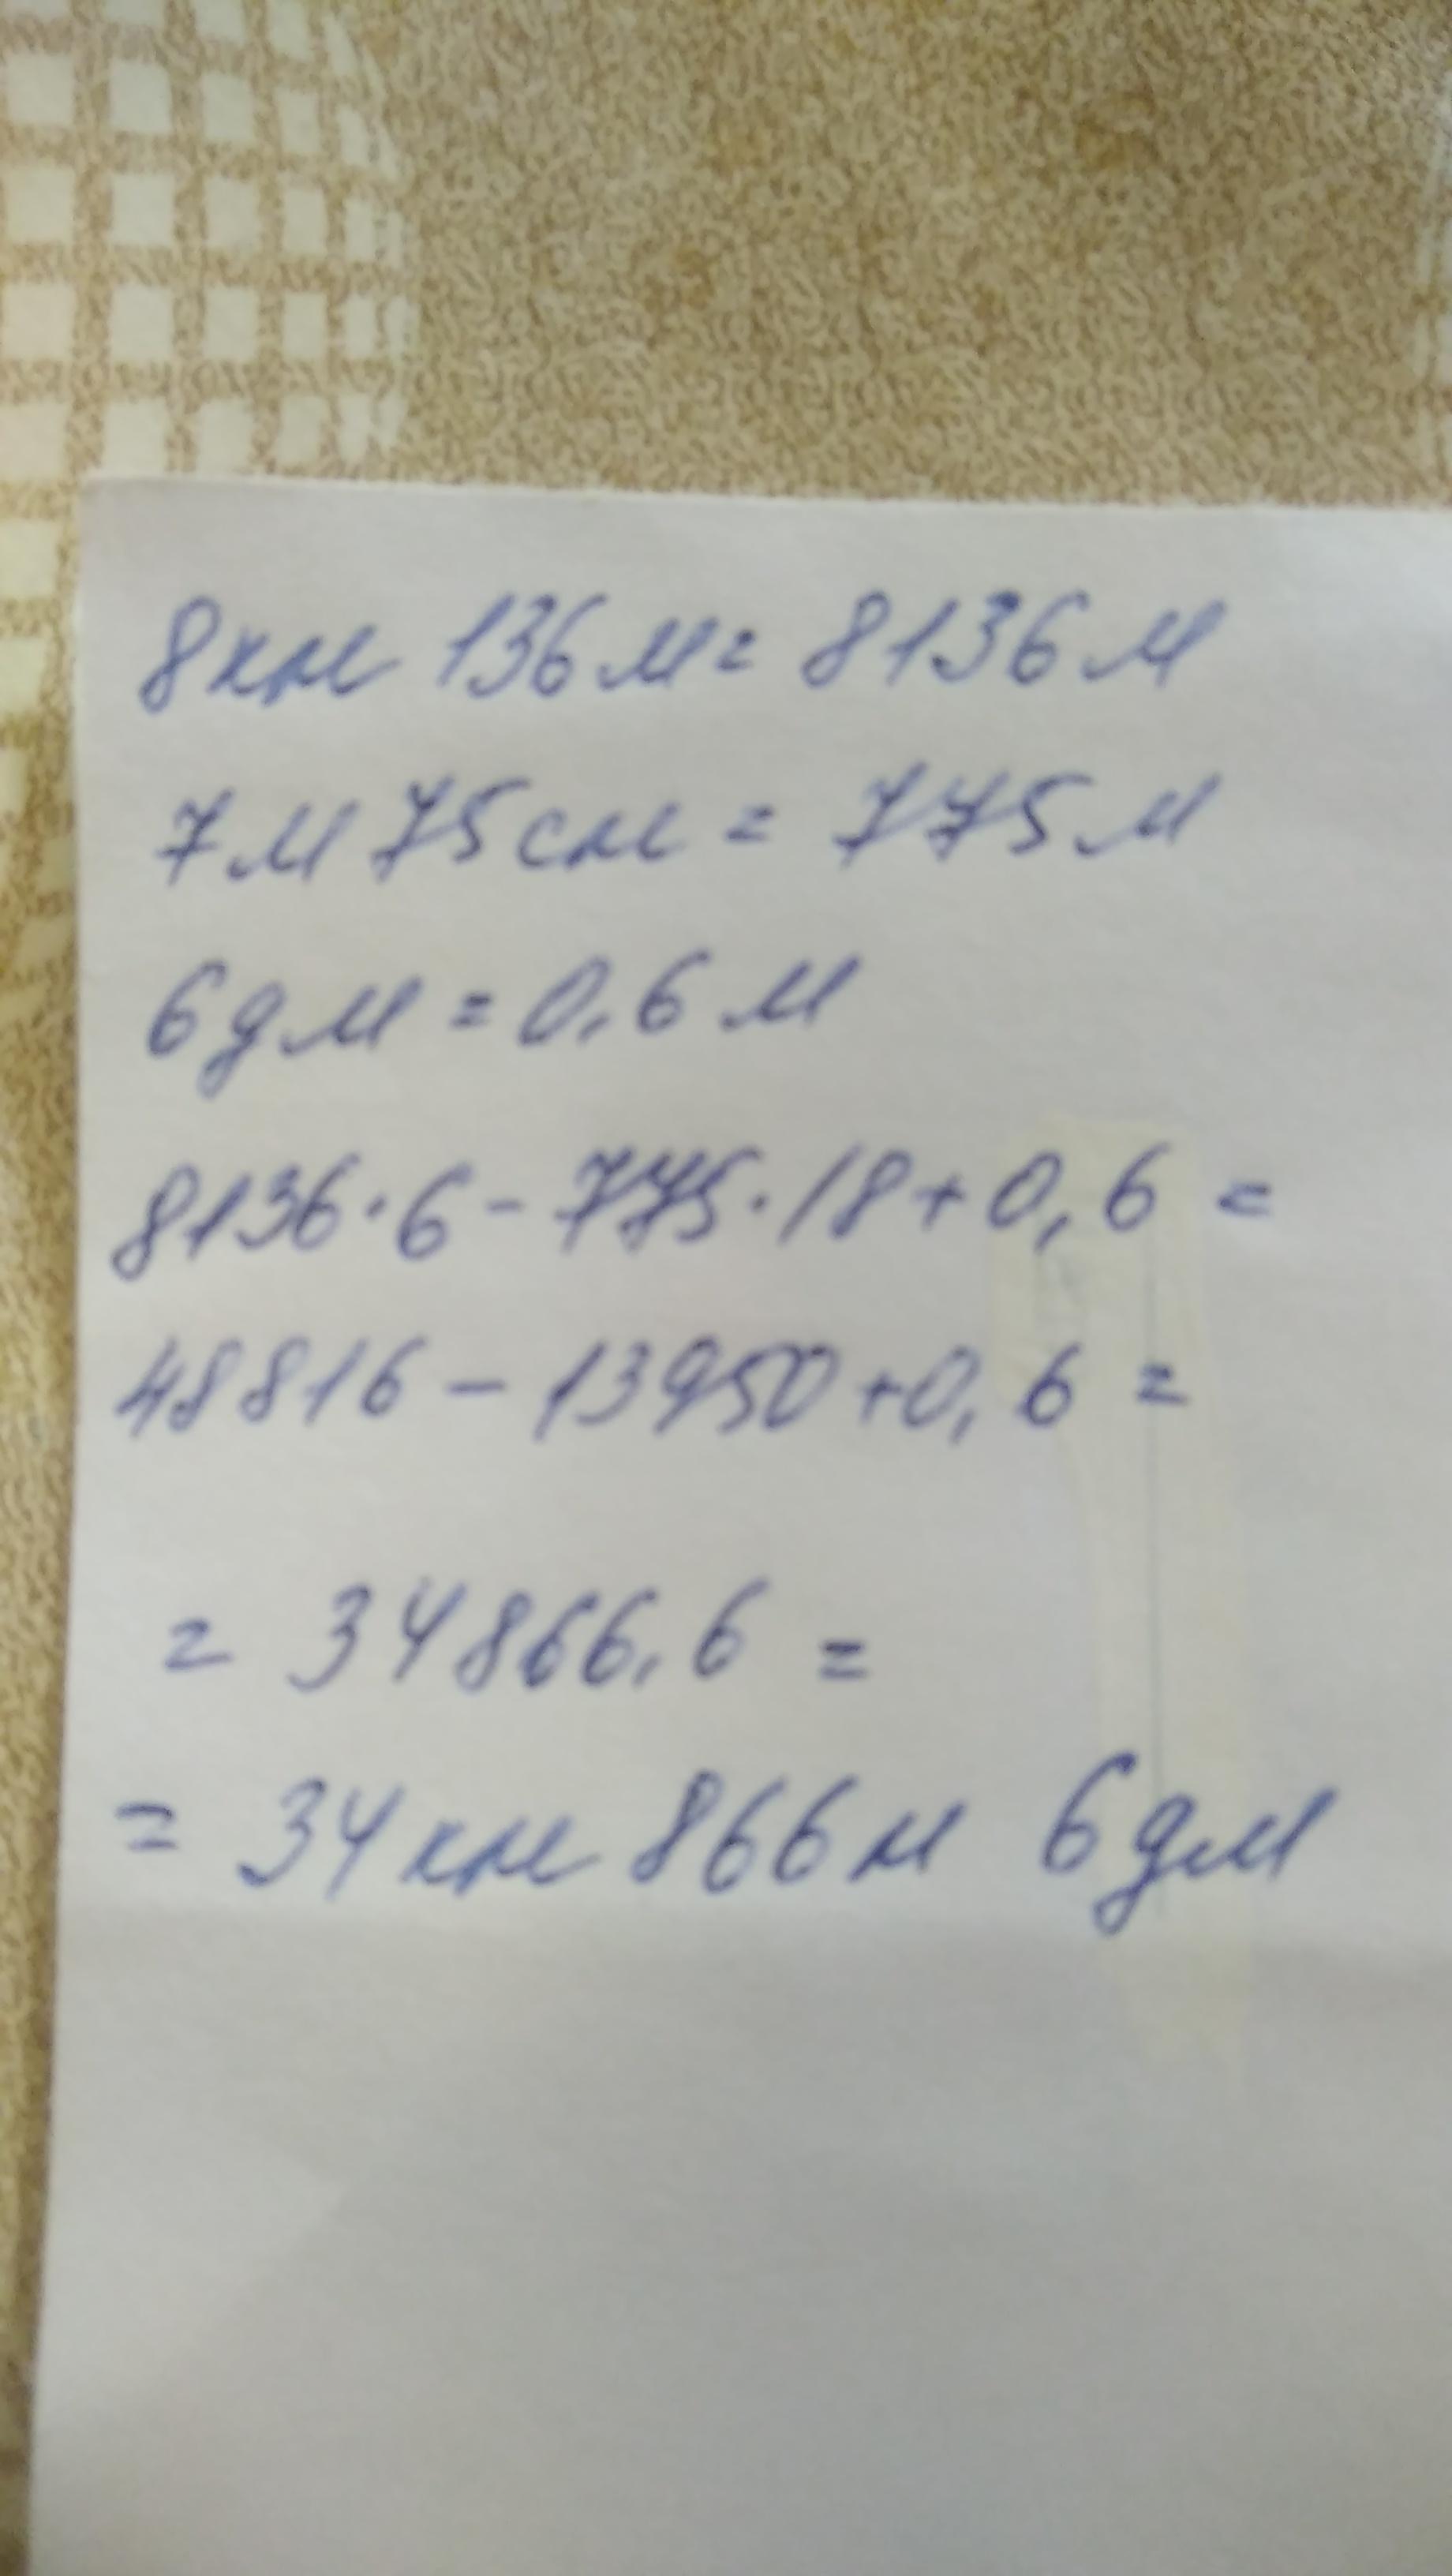 8км 136м = 8136м
7м 75см = 775м
6дм = 0,6м
8136·6-775·18+0,6 =
48816-13950+0,6 =
= 34866,6 =
= 34км 866м 6дм